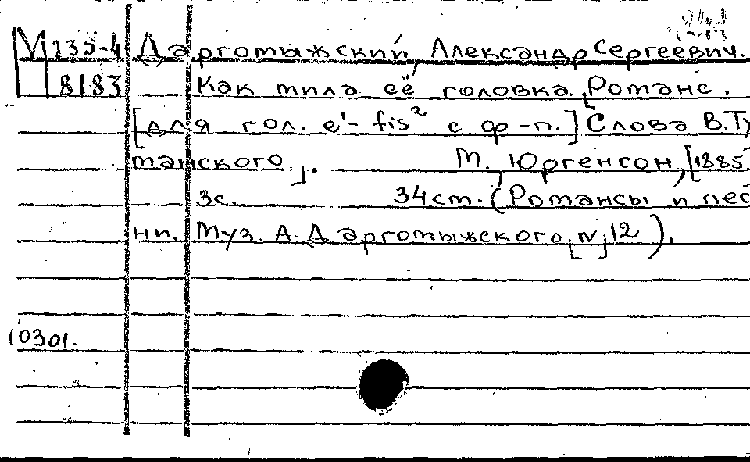 М 235-4 Даргомыжский, Александр Сергеевич.
8183 Как мила её головка. Романс.
[для гол. e'- fis² с ф-п.] Слова В. Ту
манского]. М., Юргенсон, [1885
3с. 34 ст. (Романсы и пес
ни. Муз. А. Даргомыжского, [N] 12).
10301.